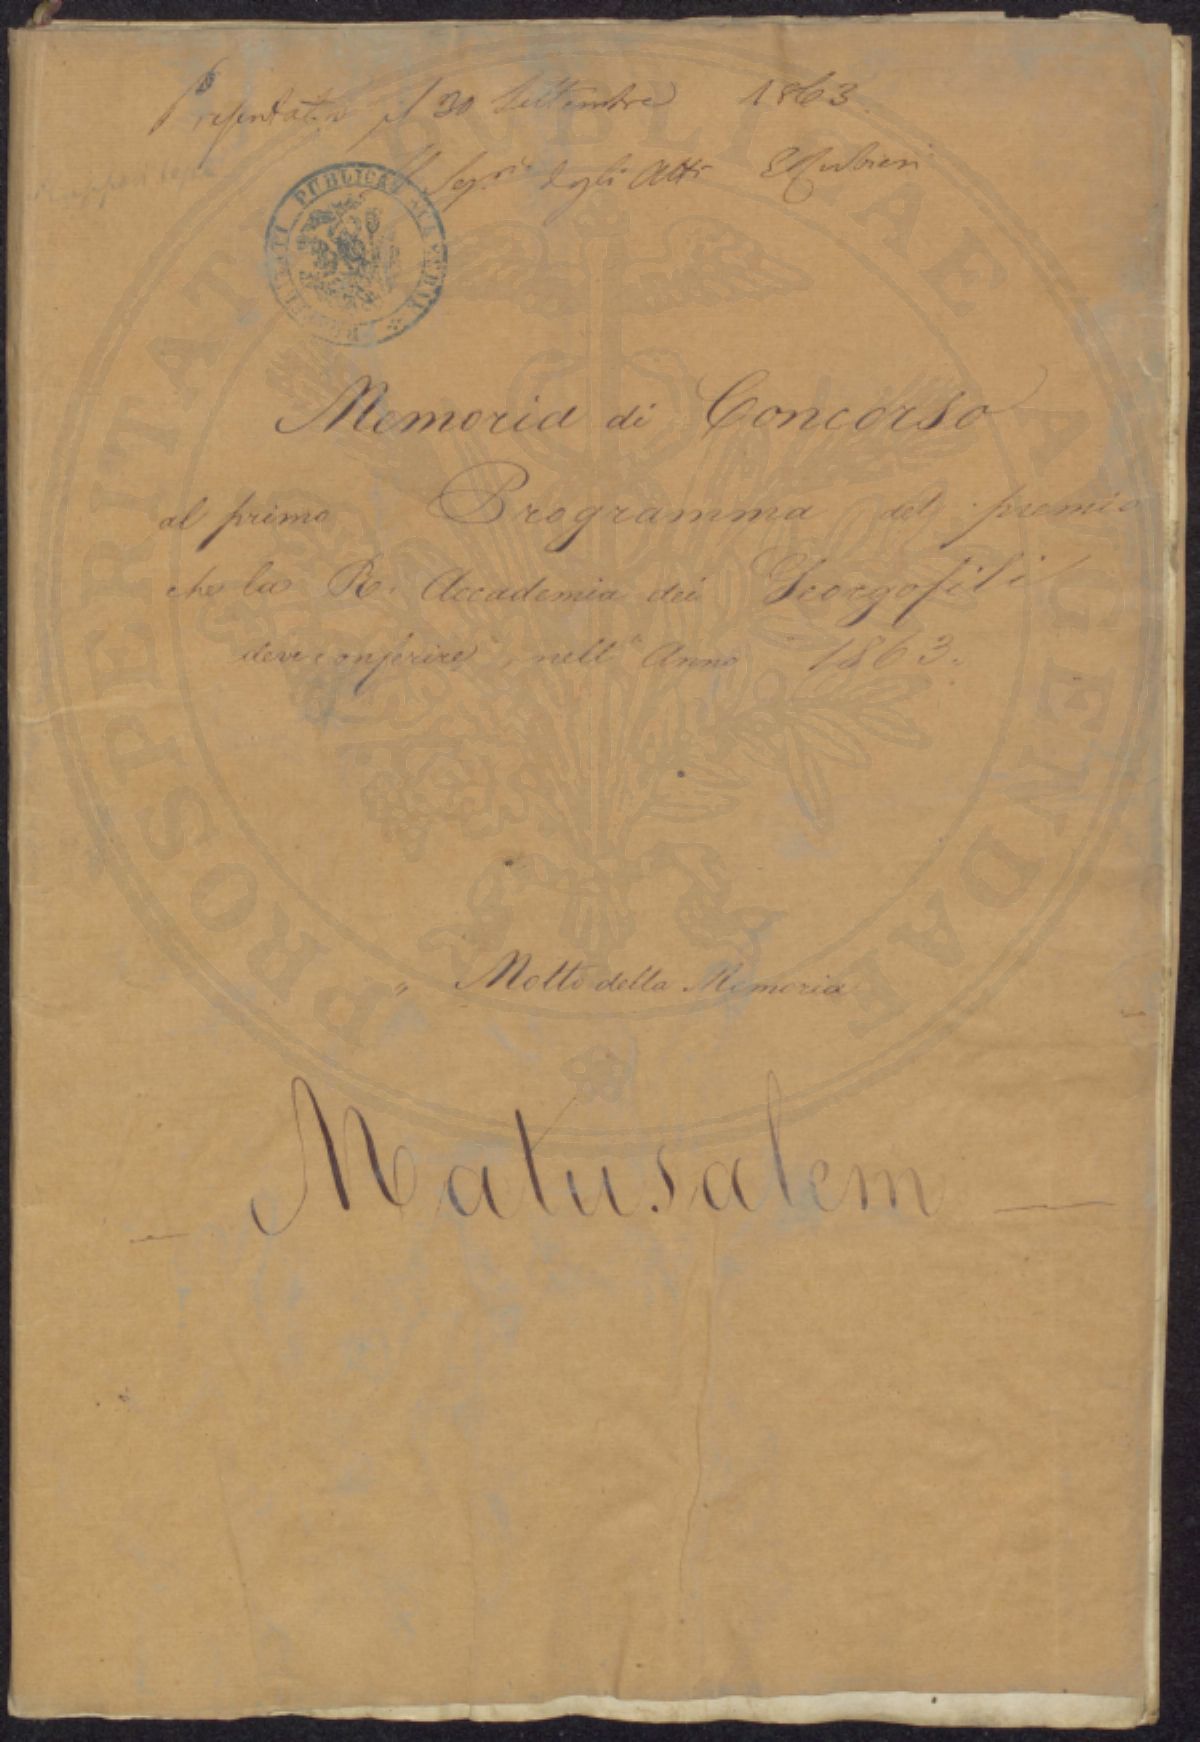 Presentata il 30 Settembre 1863.
Il Seg.rio degli Atti E Rubieri
PROSPERITATI PUBLICAE AUGENDAE
Memoria di Concorso
al primo Programma del premio
che la R. Accademia dei Georgofili
deve conferire, nell' Anno 1863.
„ Motto della Memoria
Matusalem
PROSPERITATI PUBLICAE AUGENDAE